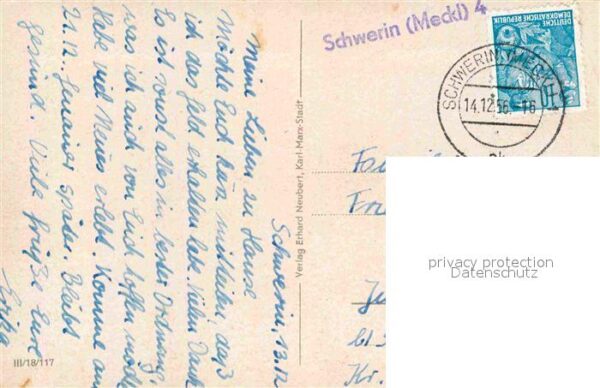 Schwerin, 13.12
Meine Lieben zu Hause
Möchte Euch kurz mitteilen, daß
ich das Geld erhalten hab. Vielen Dank
Es ist sonst alles in bester Ordnung,
was ich auch von Euch hoffen möchte
Habe viel Neues erlebt. Komme am
21.12. später. Bleibt
gesund. Viele Grüße Eure
Erika
III/18/117
Verlag Erhard Neubert, Karl-Marx-Stadt
Schwerin (Meckl) 4
DEUTSCHE
DEMOKRATISCHE REPUBLIK
SCHWERIN (MECKL)
14.12.56.-16
privacy protection
Datenschutz
Kr.